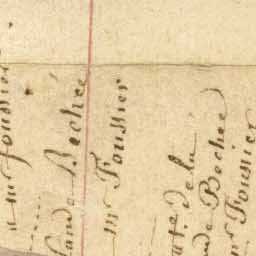 mr foussier
lande Bechée
mr Foussier
te de la
de Bechee
mr Foussier